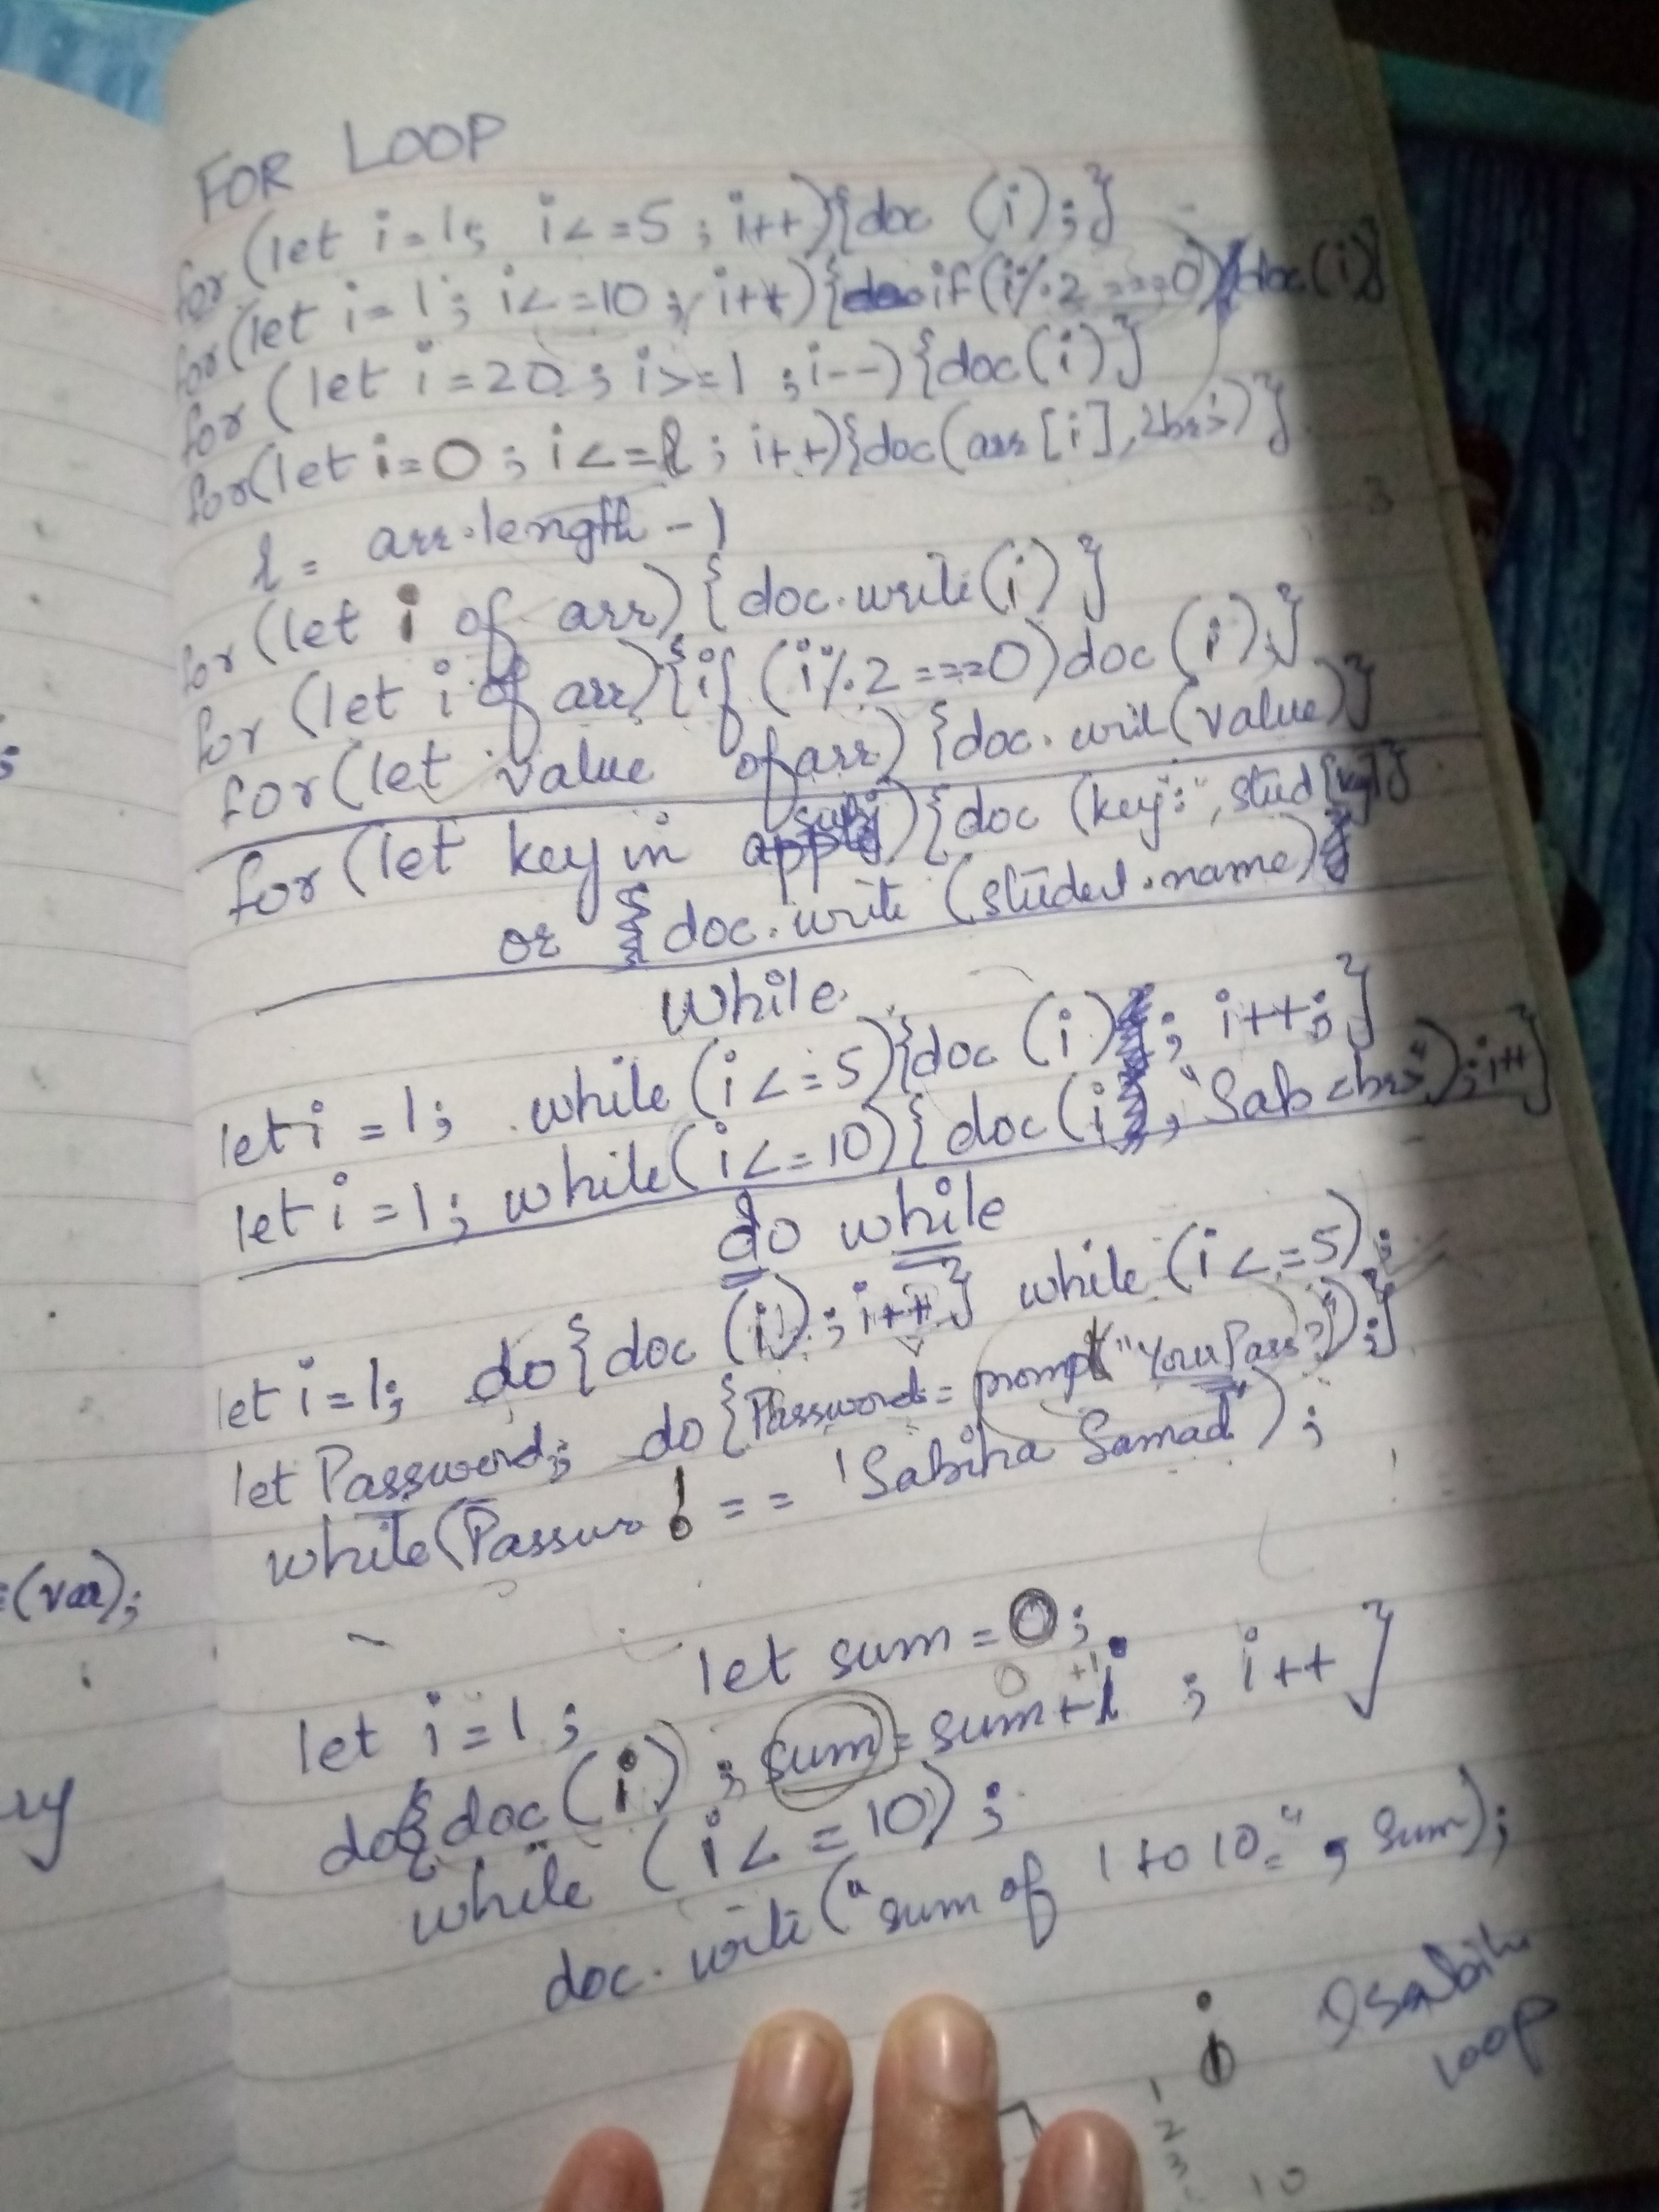 FOR LOOP
for (let i=1; i<=5; i++){doc (i);}
for(let i=1; i<=10; i++){if(i%2===0)doc(i)}
for (let i=20; i>=1; i--){doc(i)}
for(let i=0; i<=l; i++){doc(arr[i],<br>)}
l = arr.length-1
for (let i of arr){doc.write(i)}
for (let i of arr){if (i%2===0)doc(i);}
for(let value of arr){doc.writ(value)}
for (let key in subj){doc (key":", stud[key]}
or {doc.write (student.name)}
While
let i=1; while(i<=5){doc (i); i++;}
let i=1; while(i<=10){doc(i, "Sab<br>");i++}
do while
let i=1; do{doc (i); i++} while (i<=5);
let Password; do{Password=prompt("Your Pass?");}
while(Passwr !== 'Sabiha Samad');
let sum=0;
0 +1
let i=1;
do{doc(i); sum=sum+i; i++}
while (i<=10);
doc.write("sum of 1 to 10=", sum);
i
loop
1
2
3
10
=(var);
ry
;